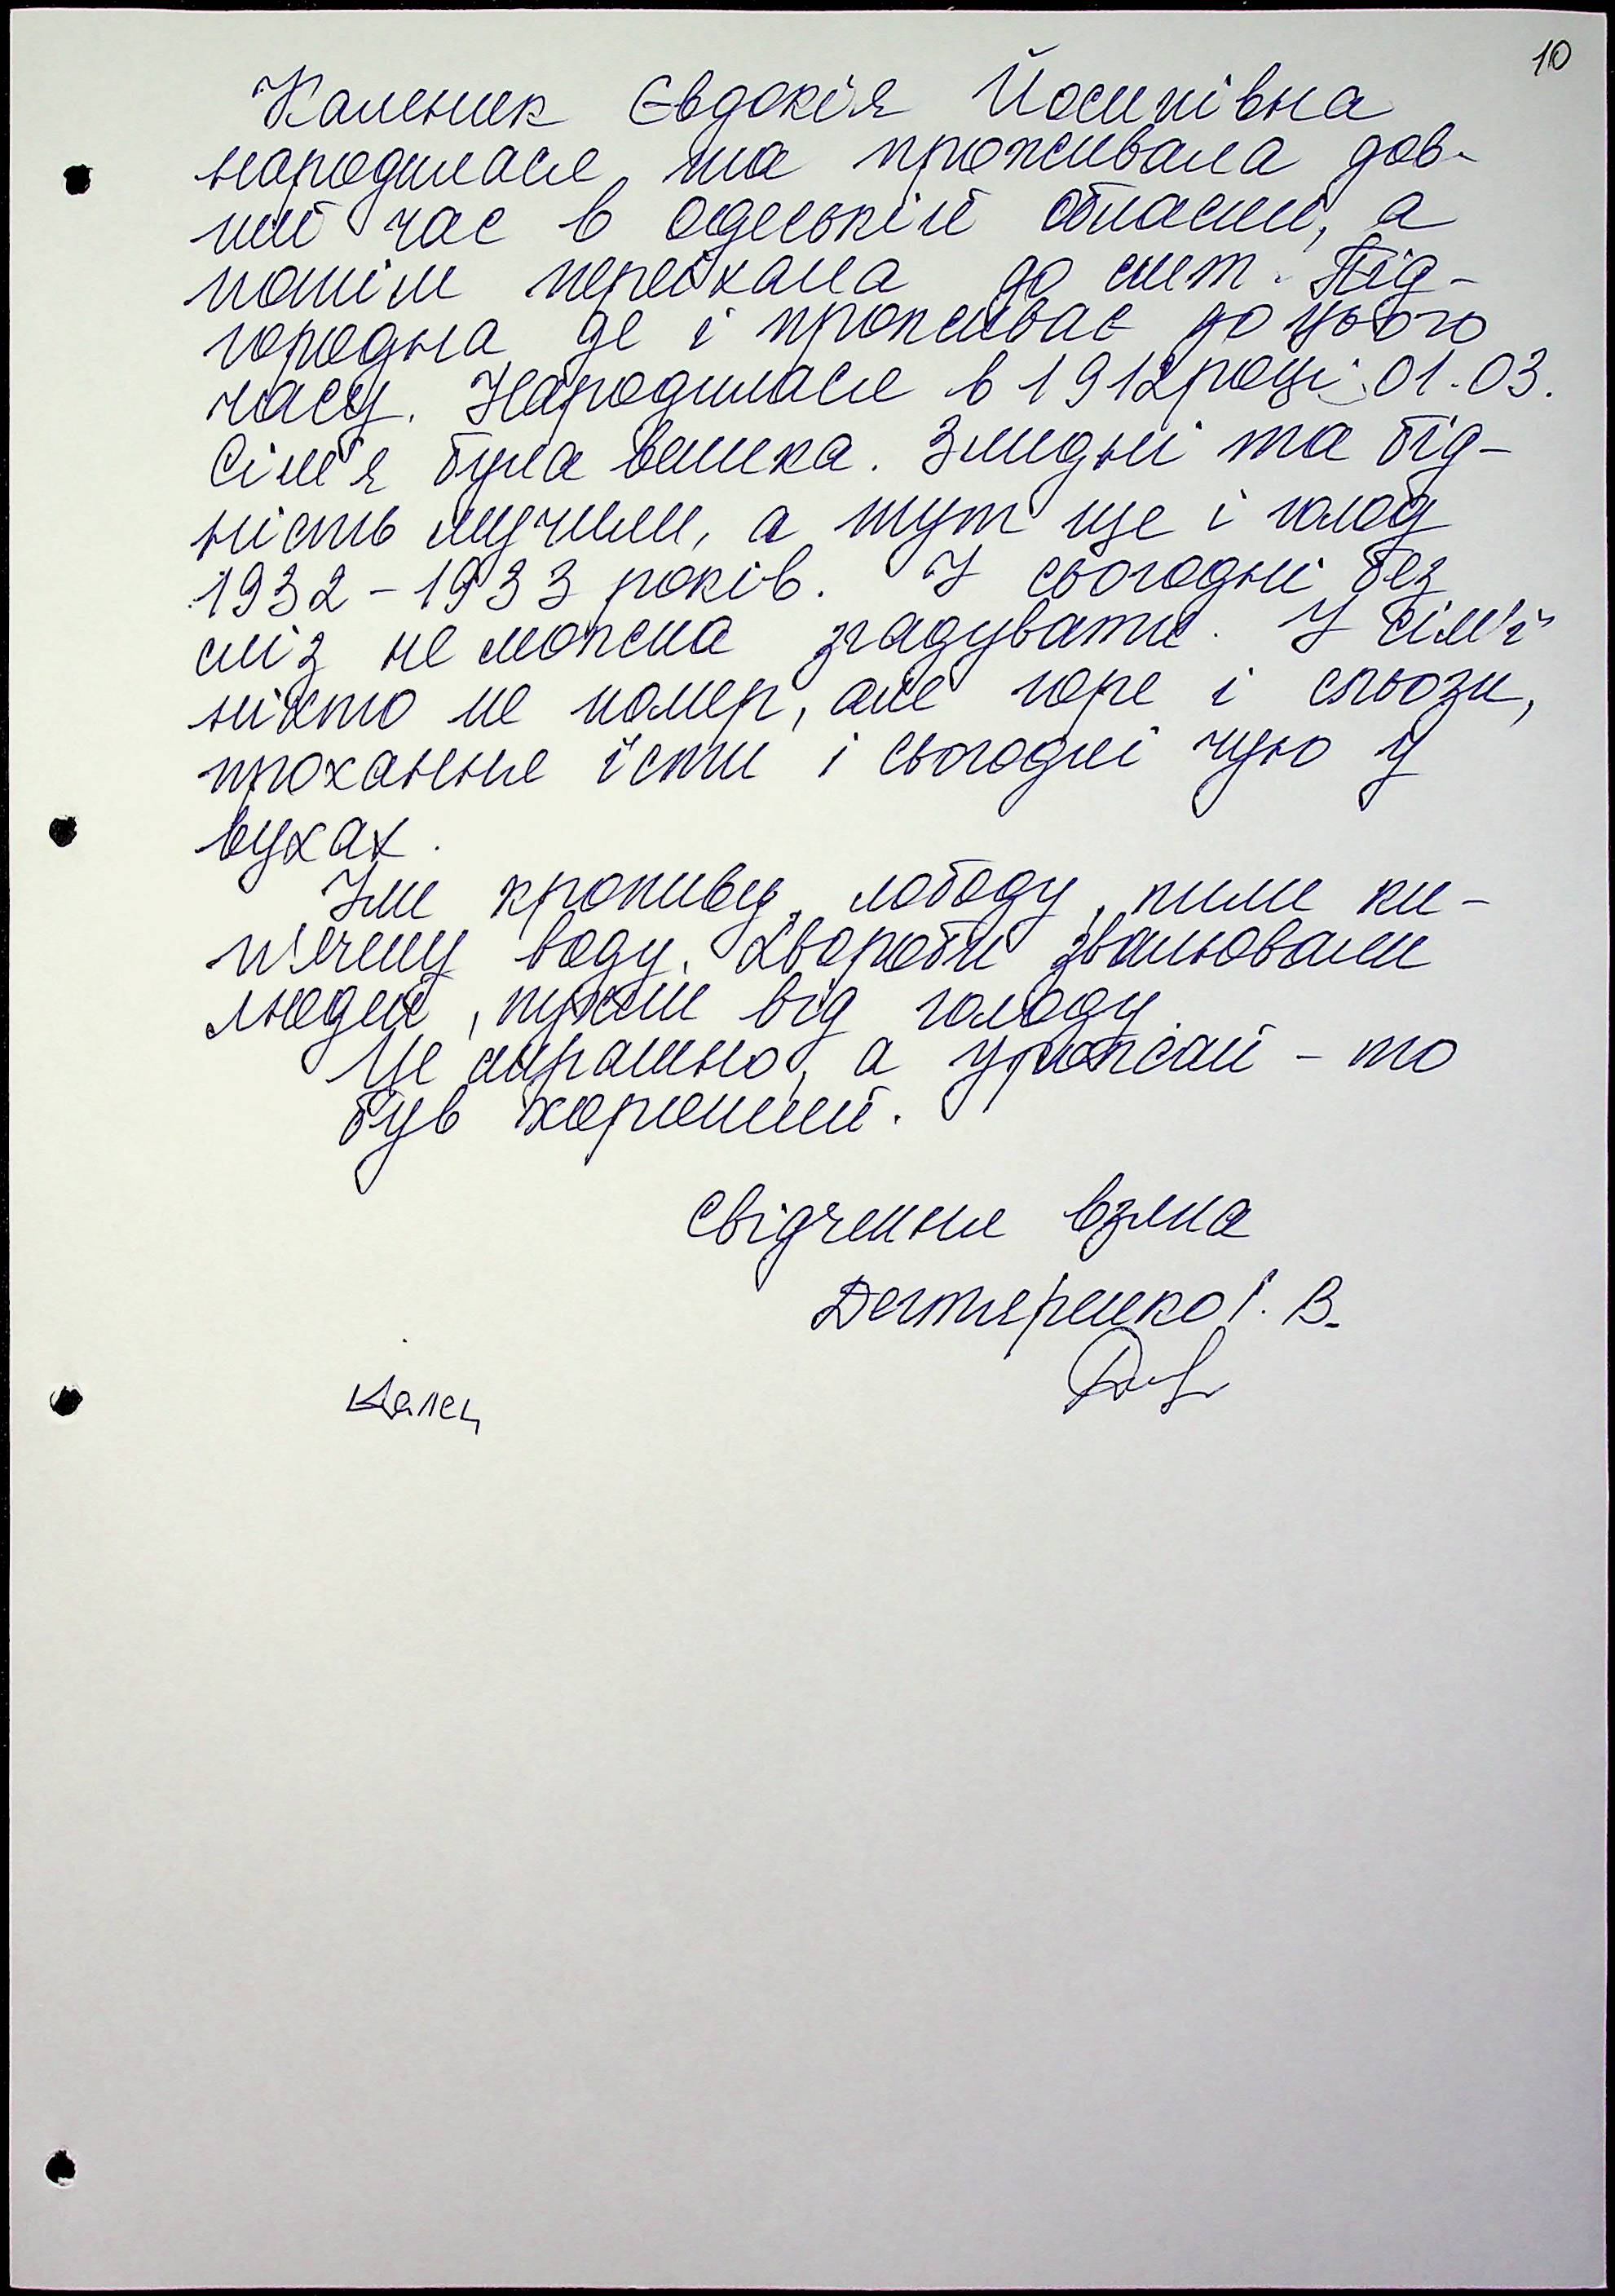 10
Каленик Євдокія Йосипівна
народилася та проживала дов-
гий час в одеській області, а
потім переїхала до смт. Під-
городна де і проживає до цього
часу. Народилася в 1912 році 01.03.
Сім'я була велика. Злидні та бід-
ність мучили, а тут ще і голод
1932-1933 років. У сьогодні без
сліз не можна згадувати. У сім'ї
ніхто не помер, але горе і сльози,
прохання їсти і сьогодні чую у
вухах.
Їли кропиву, лободу, пили ки-
п'ячену воду. Хвороби звалювали
людей, пухли від голоду.
Це страшно, а урожай - то
був хороший.
Свідчення взяла
Дегтяренко І. В.
Кален